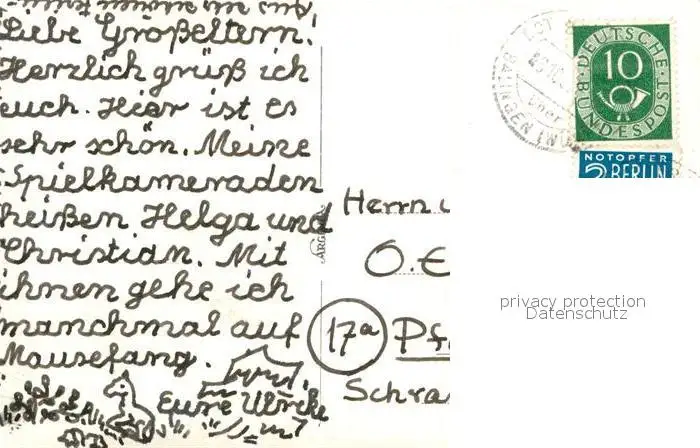 Liebe Großeltern!
Herzlich grüß ich
euch. Hier ist es
sehr schön. Meine
Spielkameraden
heißen Helga und
Christian. Mit
ihnen gehe ich
manchmal auf
Mausefang.
Eure Ulrike
DEUTSCHE
10
BUNDESPOST
NOTOPFER
2 BERLIN
Herrn u
O. E
17a Pf
Schra
privacy protection
Datenschutz